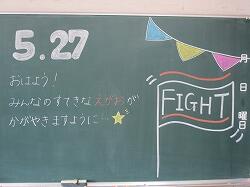 5.27
おはよう!
みんなのすてきなえがおが
かがやきますように…
FIGHT
月
日
曜日